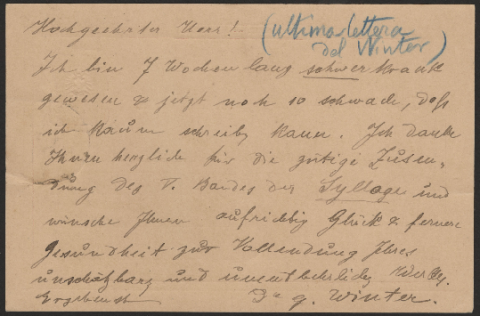 Hochgeehrter Herr!
(ultima lettera
del Winter)
Ich bin 7 Wochen lang schwer krank
gewesen & jetzt noch so schwach, daß
ich kaum schreiben kann. Ich danke
Ihnen herzlich für die gütige Zusen-
dung des V. Bandes der Sylloge und
wünsche Ihnen aufrichtig Glück & fernere
Gesundheit zur Vollendung Ihres
unschätzbaren und unentbehrlichen Werkes.
Ergebenst Dr G. Winter.